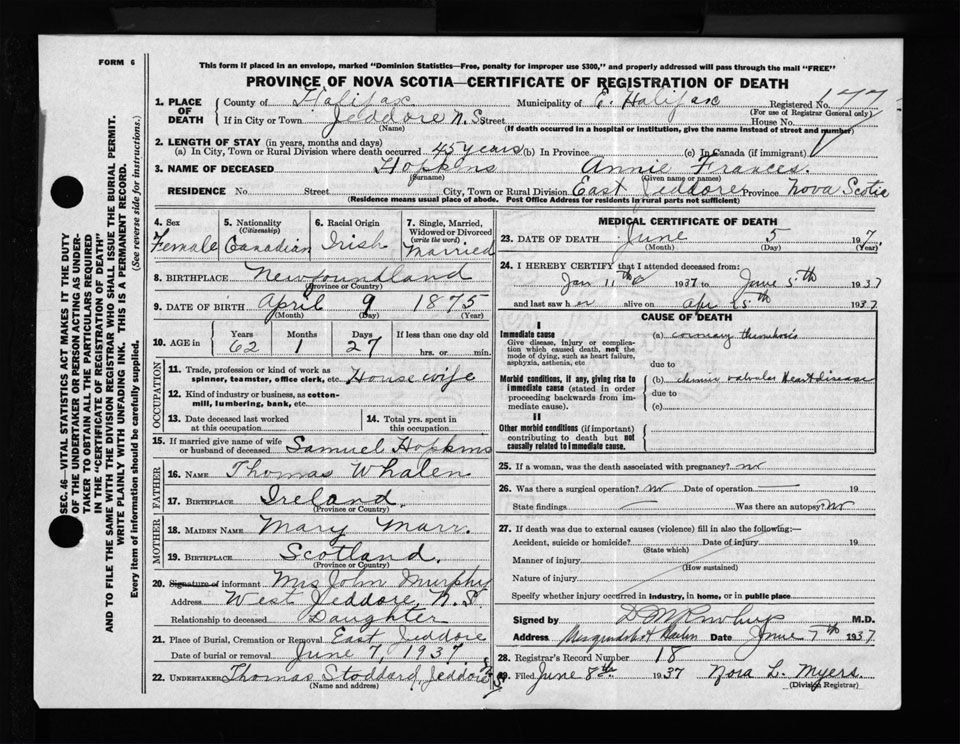 FORM 6
This form if placed in an envelope, marked "Dominion Statistics—Free, penalty for improper use $300," and properly addressed will pass through the mail "FREE"
PROVINCE OF NOVA SCOTIA—CERTIFICATE OF REGISTRATION OF DEATH
SEC. 46—VITAL STATISTICS ACT MAKES IT THE DUTY
OF THE UNDERTAKER OR PERSON ACTING AS UNDER-
TAKER TO OBTAIN ALL THE PARTICULARS REQUIRED
IN THE "CERTIFICATE OF REGISTRATION OF DEATH"
AND TO FILE THE SAME WITH THE DIVISION REGISTRAR WHO SHALL ISSUE THE BURIAL PERMIT.
WRITE PLAINLY WITH UNFADING INK. THIS IS A PERMANENT RECORD.
Every item of information should be carefully supplied. (See reverse side for instructions.)
1. PLACE OF DEATH
County of Halifax Municipality of E. Halifax Registered No. 177
(For use of Registrar General only)
If in City or Town Jeddore N.S. Street House No.
(Name) (If death occurred in a hospital or institution, give the name instead of street and number)
2. LENGTH OF STAY (in years, months and days)
(a) In City, Town or Rural Division where death occurred 45 years (b) In Province (c) In Canada (if immigrant)
3. NAME OF DECEASED Hopkins Annie Frances.
(Surname) (Given name or names)
RESIDENCE No. Street City, Town or Rural Division East Jeddore Province Nova Scotia
(Residence means usual place of abode. Post Office Address for residents in rural parts not sufficient)
4. Sex Female
5. Nationality (Citizenship) Canadian
6. Racial Origin Irish
7. Single, Married, Widowed or Divorced (write the word) Married
8. BIRTHPLACE Newfoundland
(Province or Country)
9. DATE OF BIRTH April 9 1875
(Month) (Day) (Year)
10. AGE in Years 62 Months 1 Days 27 If less than one day old hrs. or min.
OCCUPATION
11. Trade, profession or kind of work as spinner, teamster, office clerk, etc. Housewife
12. Kind of industry or business, as cotton-mill, lumbering, bank, etc.
13. Date deceased last worked at this occupation
14. Total yrs. spent in this occupation
15. If married give name of wife or husband of deceased Samuel Hopkins
FATHER
16. NAME Thomas Whalen
17. BIRTHPLACE Ireland
(Province or Country)
MOTHER
18. MAIDEN NAME Mary Marr.
19. BIRTHPLACE Scotland.
(Province or Country)
20. Signature of informant Mrs John Murphy
Address West Jeddore, N.S.
Relationship to deceased Daughter
21. Place of Burial, Cremation or Removal East Jeddore
Date of burial or removal June 7, 1937
22. UNDERTAKER Thomas Stoddard, Jeddore
(Name and address)
MEDICAL CERTIFICATE OF DEATH
23. DATE OF DEATH June 5 1937.
(Month) (Day) (Year)
24. I HEREBY CERTIFY that I attended deceased from:
Jan 11th 1937 to June 5th 1937
and last saw her alive on Apr 25th 1937.
CAUSE OF DEATH
I
Immediate cause
Give disease, injury or complication which caused death, not the mode of dying, such as heart failure, asphyxia, asthenia, etc
(a) coronary thrombosis
due to
Morbid conditions, if any, giving rise to immediate cause (stated in order proceeding backwards from immediate cause)
(b) chronic valvular Heart disease
due to
(c)
II
Other morbid conditions (if important) contributing to death but not causally related to immediate cause.
25. If a woman, was the death associated with pregnancy? no
26. Was there a surgical operation? no Date of operation — 19
State findings — Was there an autopsy? no
27. If death was due to external causes (violence) fill in also the following:—
Accident, suicide or homicide? Date of injury 19
(State which)
Manner of injury
(How sustained)
Nature of injury
Specify whether injury occurred in industry, in home, or in public place
Signed by M.D.
Address Date June 7th 1937
28. Registrar's Record Number 18
29. Filed June 8th 1937 Nora L. Myers.
(Division Registrar)